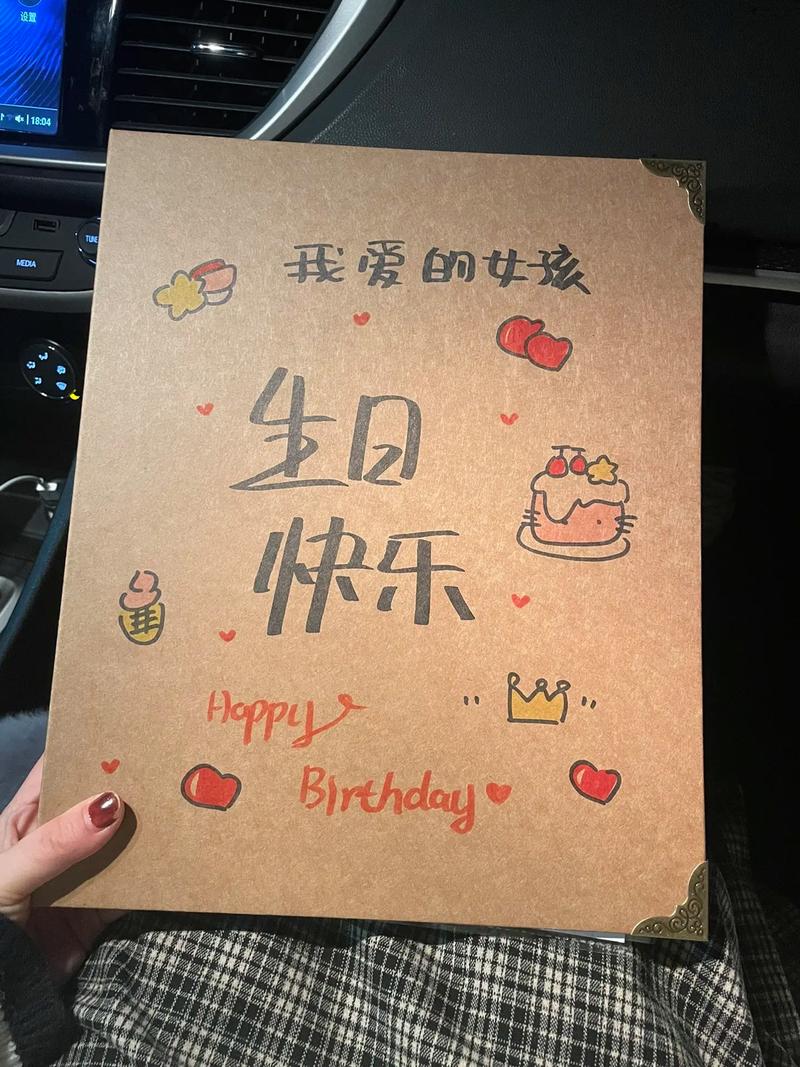 设置
18:04
TUNE
MEDIA
我爱的女孩
生日
快乐
Happy
Birthday